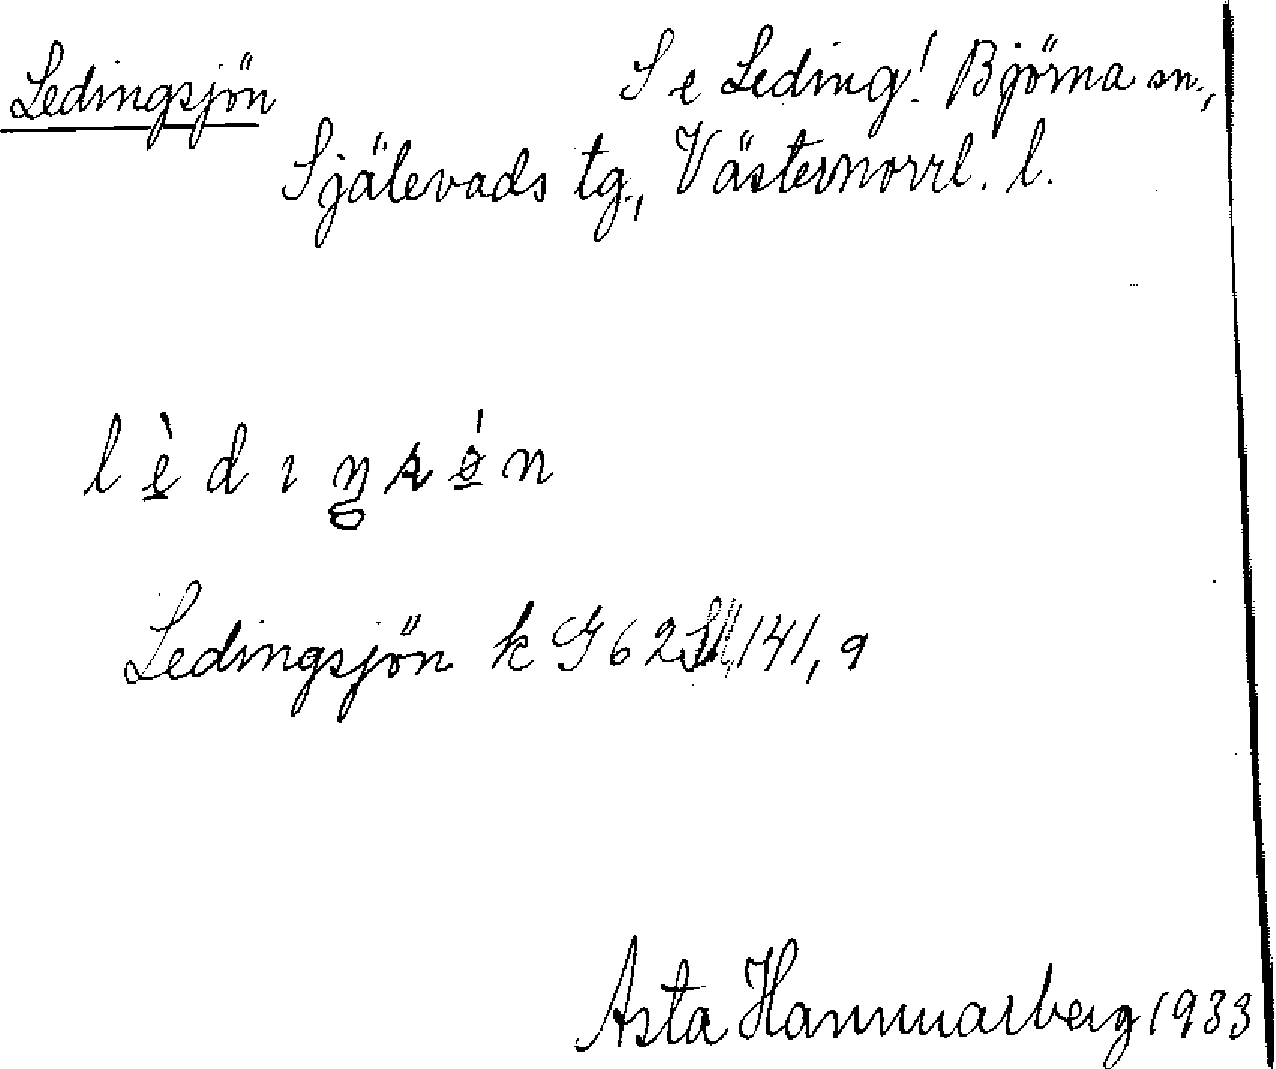 Ledingsjön Se Leding! Björna sn.,
Själevads tg., Västernorrl. l.
Ledingsjön k G 62 141, 9
Asta Hammarberg 1933